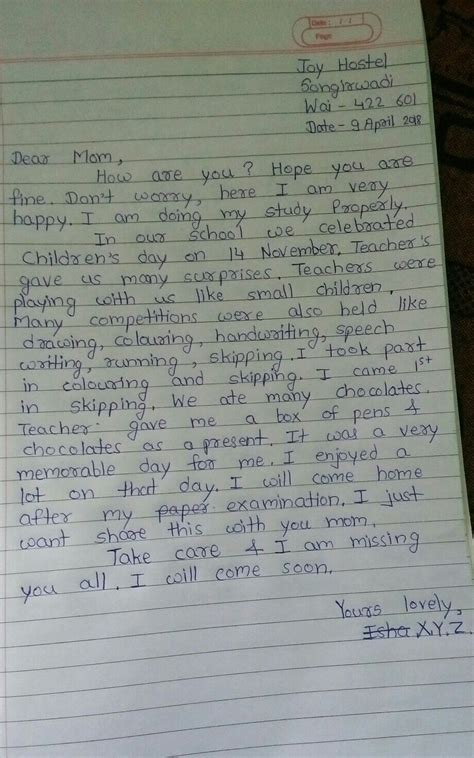 Date: 11
Page
Joy Hostel
Songirwadi
Wai - 422 601
Date - 9 April 208
Dear Mom,
How are you? Hope you are
fine. Don't worry, here I am very
happy. I am doing my study Properly.
In our school we celebrated
Children's day on 14 November. Teacher's
gave us many surprises. Teachers were
playing with us like small children.
Many competitions were also held like
drawing, colouring, handwriting, speech
writing, running, skipping. I took part
in colouring and skipping. I came 1st
in skipping. We ate many chocolates.
Teacher gave me a box of pens &
chocolates as a present. It was a very
memorable day for me. I enjoyed a
lot on that day. I will come home
after my paper examination. I just
want share this with you mom.
Take care & I am missing
you all. I will come soon.
Yours lovely,
Isha X.Y.Z.